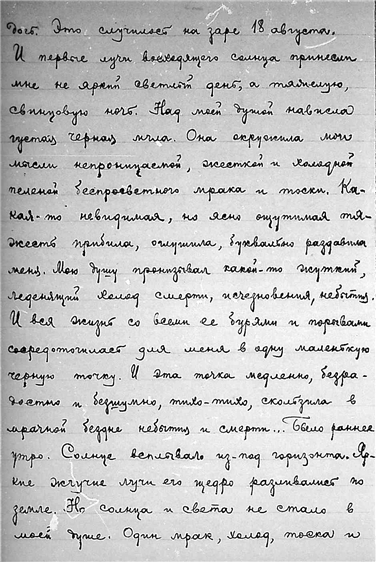 дось. Это случилось на заре 18 августа.
И первые лучи восходящего солнца принесли
мне не яркий светлый день, а тяжелую,
свинцовую ночь. Над моей душой нависла
густая черная мгла. Она окружила мои
мысли непроницаемой, жесткой и холодной
пеленой беспросветного мрака и тоски. Ка-
кая-то невидимая, но ясно ощутимая тя-
жесть прибила, оглушила, буквально раздавила
меня. Мою душу пронизывал какой-то жуткий,
леденящий холод смерти, исчезновения, небытия.
И вся жизнь со всеми ее бурями и порывами
сосредоточилась для меня в одну маленькую
черную точку. И эта точка медленно, безра-
достно и бесшумно, тихо-тихо, скользила в
мрачной бездне небытия и смерти... Было раннее
утро. Солнце всплывало из-под горизонта. Яр-
кие жгучие лучи его щедро разливались по
земле. Но солнца и света не стало в
моей душе. Один мрак, холод, тоска и